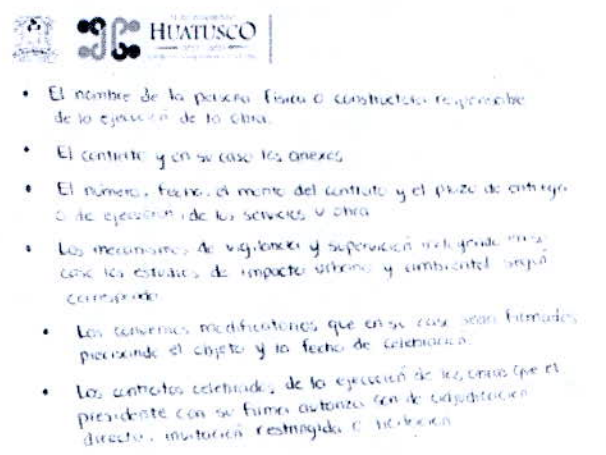 HUATUSCO
• El nombre de la persona física o constructora responsable
de la ejecución de la obra.
• El contrato y en su caso los anexos
• El número, fecha, el monto del contrato y el plazo de entrega
o de ejecución de los servicios u obra
• Los mecanismos de vigilancia y supervición incluyendo en su
caso los estudios de impacto urbano y ambiental según
corresponda.
• Los convenios modificatorios que en su caso sean firmados,
precisando el objeto y la fecha de celebración.
• Los contratos celebrados, de la ejecución de las obras que el
presidente con su firma autoriza son de adjudicación
directa, invitación restringida o licitación